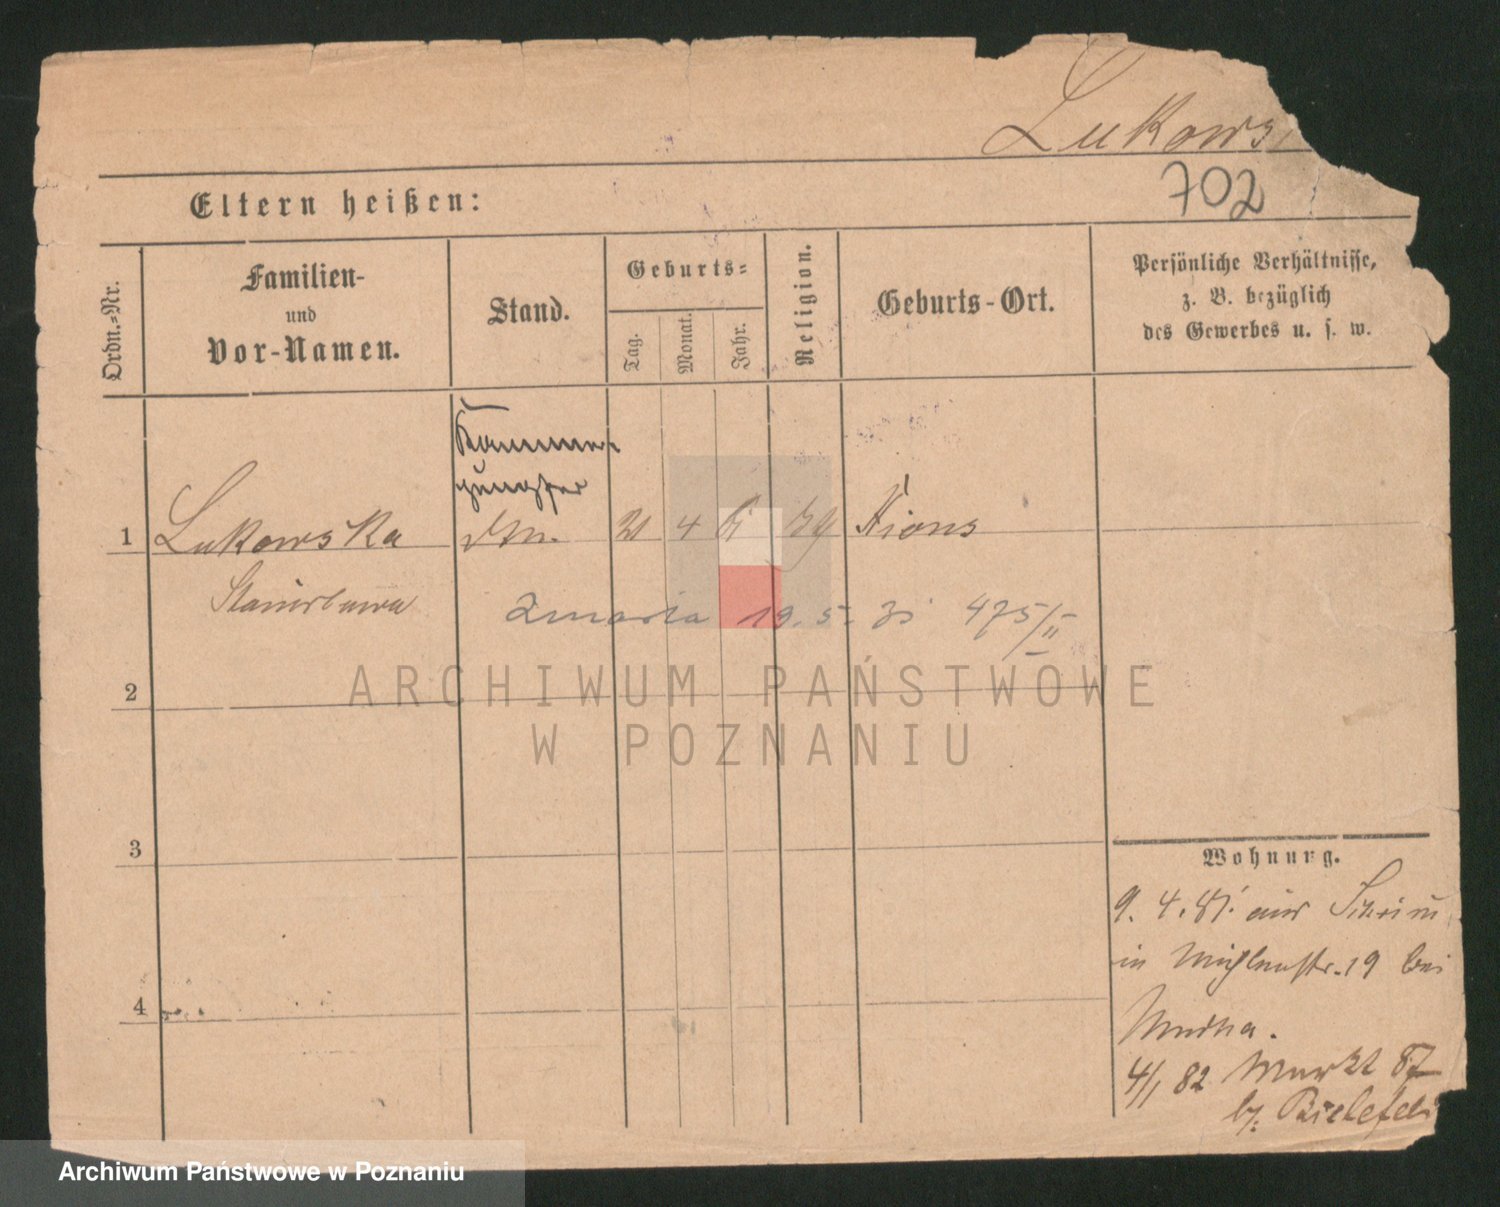 Lukows
702
Eltern heißen:
Ordn.-Nr.
Familien-
und
Vor-Namen.
Stand.
Geburts-
Tag.
Monat.
Jahr.
Religion.
Geburts-Ort.
Persönliche Verhältnisse,
z. B. bezüglich
des Gewerbes u. s. w.
Kammer-
jungfer
1 Lukowska 4 Xions
Stanislawa
zmarła 19. 5. 31 475/II
2
ARCHIWUM PAŃSTWOWE
W POZNANIU
3
Wohnung.
9. 4. 81. aus Schrim
in Mühlenstr. 19 bei
4
4/1 82 Markt 87
b/. Bielefeld
Archiwum Państwowe w Poznaniu